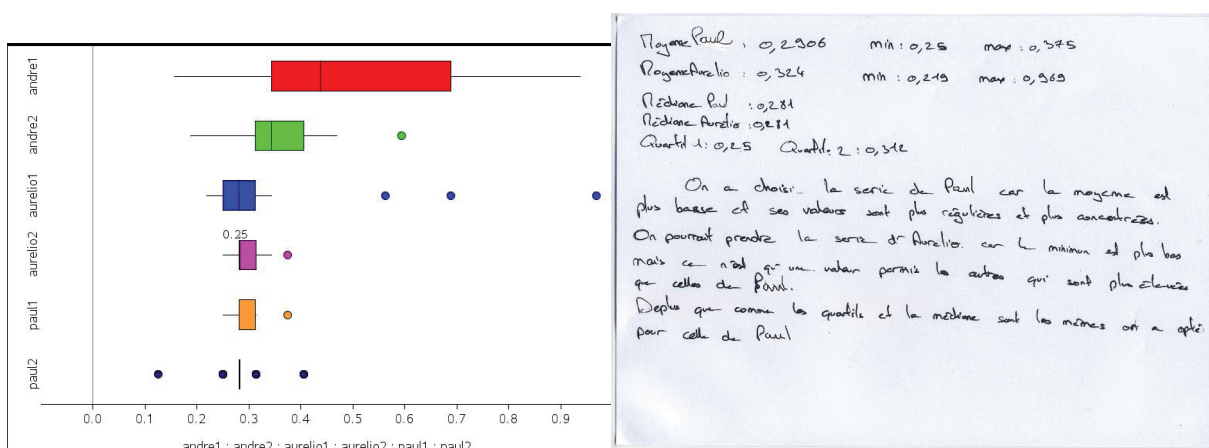 andre1
andre2
aurelio1
0.25
aurelio2
paul1
paul2
0.0 0.1 0.2 0.3 0.4 0.5 0.6 0.7 0.8 0.9
andre1 ; andre2 ; aurelio1 ; aurelio2 ; paul1 ; paul2
Moyenne Paul : 0,2906 min : 0,25 max : 0,375
Moyenne Aurelio : 0,324 min : 0,219 max : 0,969
Médiane Paul : 0,281
Médiane Aurelio : 0,281
Quartil 1 : 0,25 Quartile 2 : 0,312
On a choisi la serie de Paul car la moyenne est
plus basse et ses valeurs sont plus régulières et plus concentrées.
On pourrait prendre la serie d'Aurelio car le minimun est plus bas
mais ce n'est qu'une valeur parmis les autres qui sont plus élevées
que celles de Paul.
Deplus que comme les quartils et la médiane sont les mêmes on a opté
pour celle de Paul